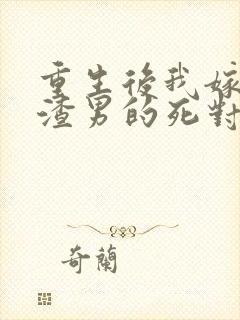 重生後我嫁
渣男的死對
奇蘭